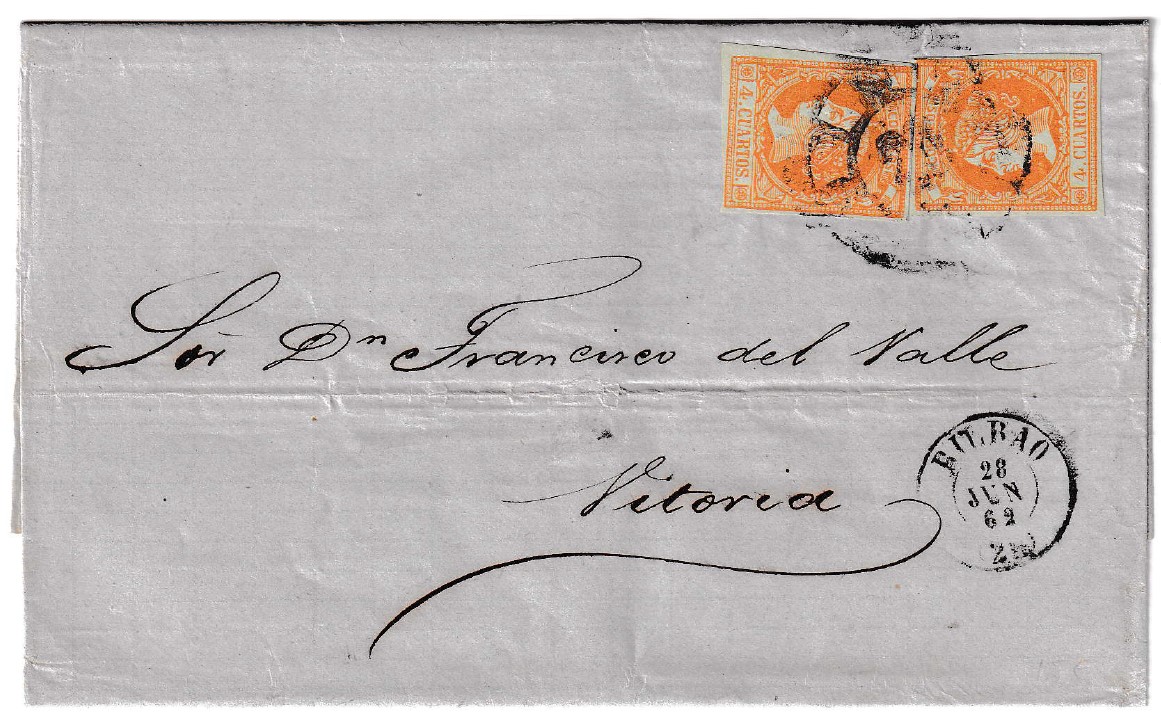 4. CUARTOS.
4. CUARTOS.
Sòr Dn Francisco del Valle
Vitoria
BILBAO
28
JUN
62